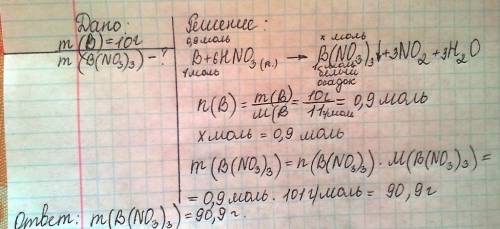 Дано:
m(B)=10г
m(B(NO₃)₃)-?
Решение:
0,9 моль х моль
B+6HNO₃(к.) → B(NO₃)₃↓+3NO₂+3H₂O
1 моль 1 моль
белый
осадок
n(B)=m(B)/M(B = 10г/11г/моль = 0,9 моль
х моль = 0,9 моль
m(B(NO₃)₃)=n(B(NO₃)₃)·M(B(NO₃)₃)=
= 0,9 моль · 101г/моль = 90,9г
Ответ: m(B(NO₃)₃)=90,9г.